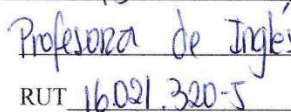 Profesora de Inglés
RUT 16.021.320-5